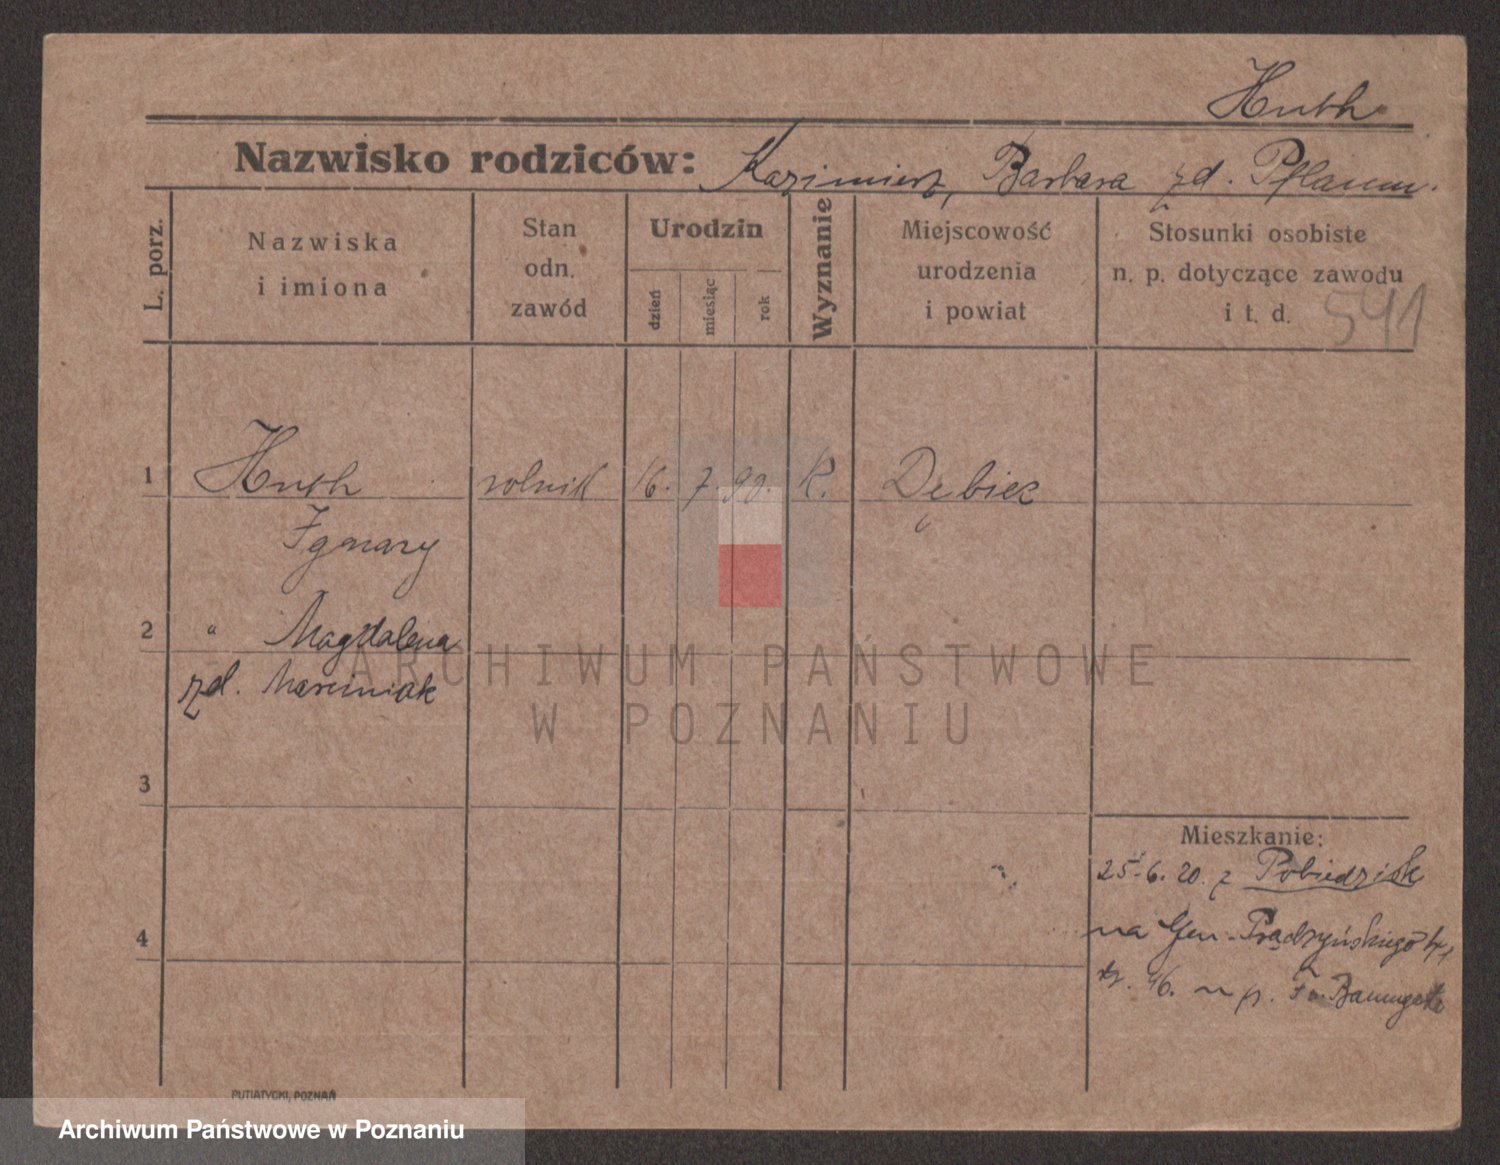 Huth
Nazwisko rodziców: Kazimierz, Barbara zd. Pflaum.
L. porz.
Nazwiska
i imiona
Stan
odn.
zawód
Urodzin
dzień
miesiąc
rok
Wyznanie
Miejscowość
urodzenia
i powiat
Stosunki osobiste
n. p. dotyczące zawodu
i t. d.
541
1 Huth rolnik 16. 7. 90. K. Dębiec
Ignacy
2 " Magdalena
zd. Marciniak
3
4
Mieszkanie:
25.6.20. z Pobiedzisk
na Gen. Prądzyńskiego
46.
PUTIATYCKI, POZNAŃ
ARCHIWUM PAŃSTWOWE
W POZNANIU
Archiwum Państwowe w Poznaniu